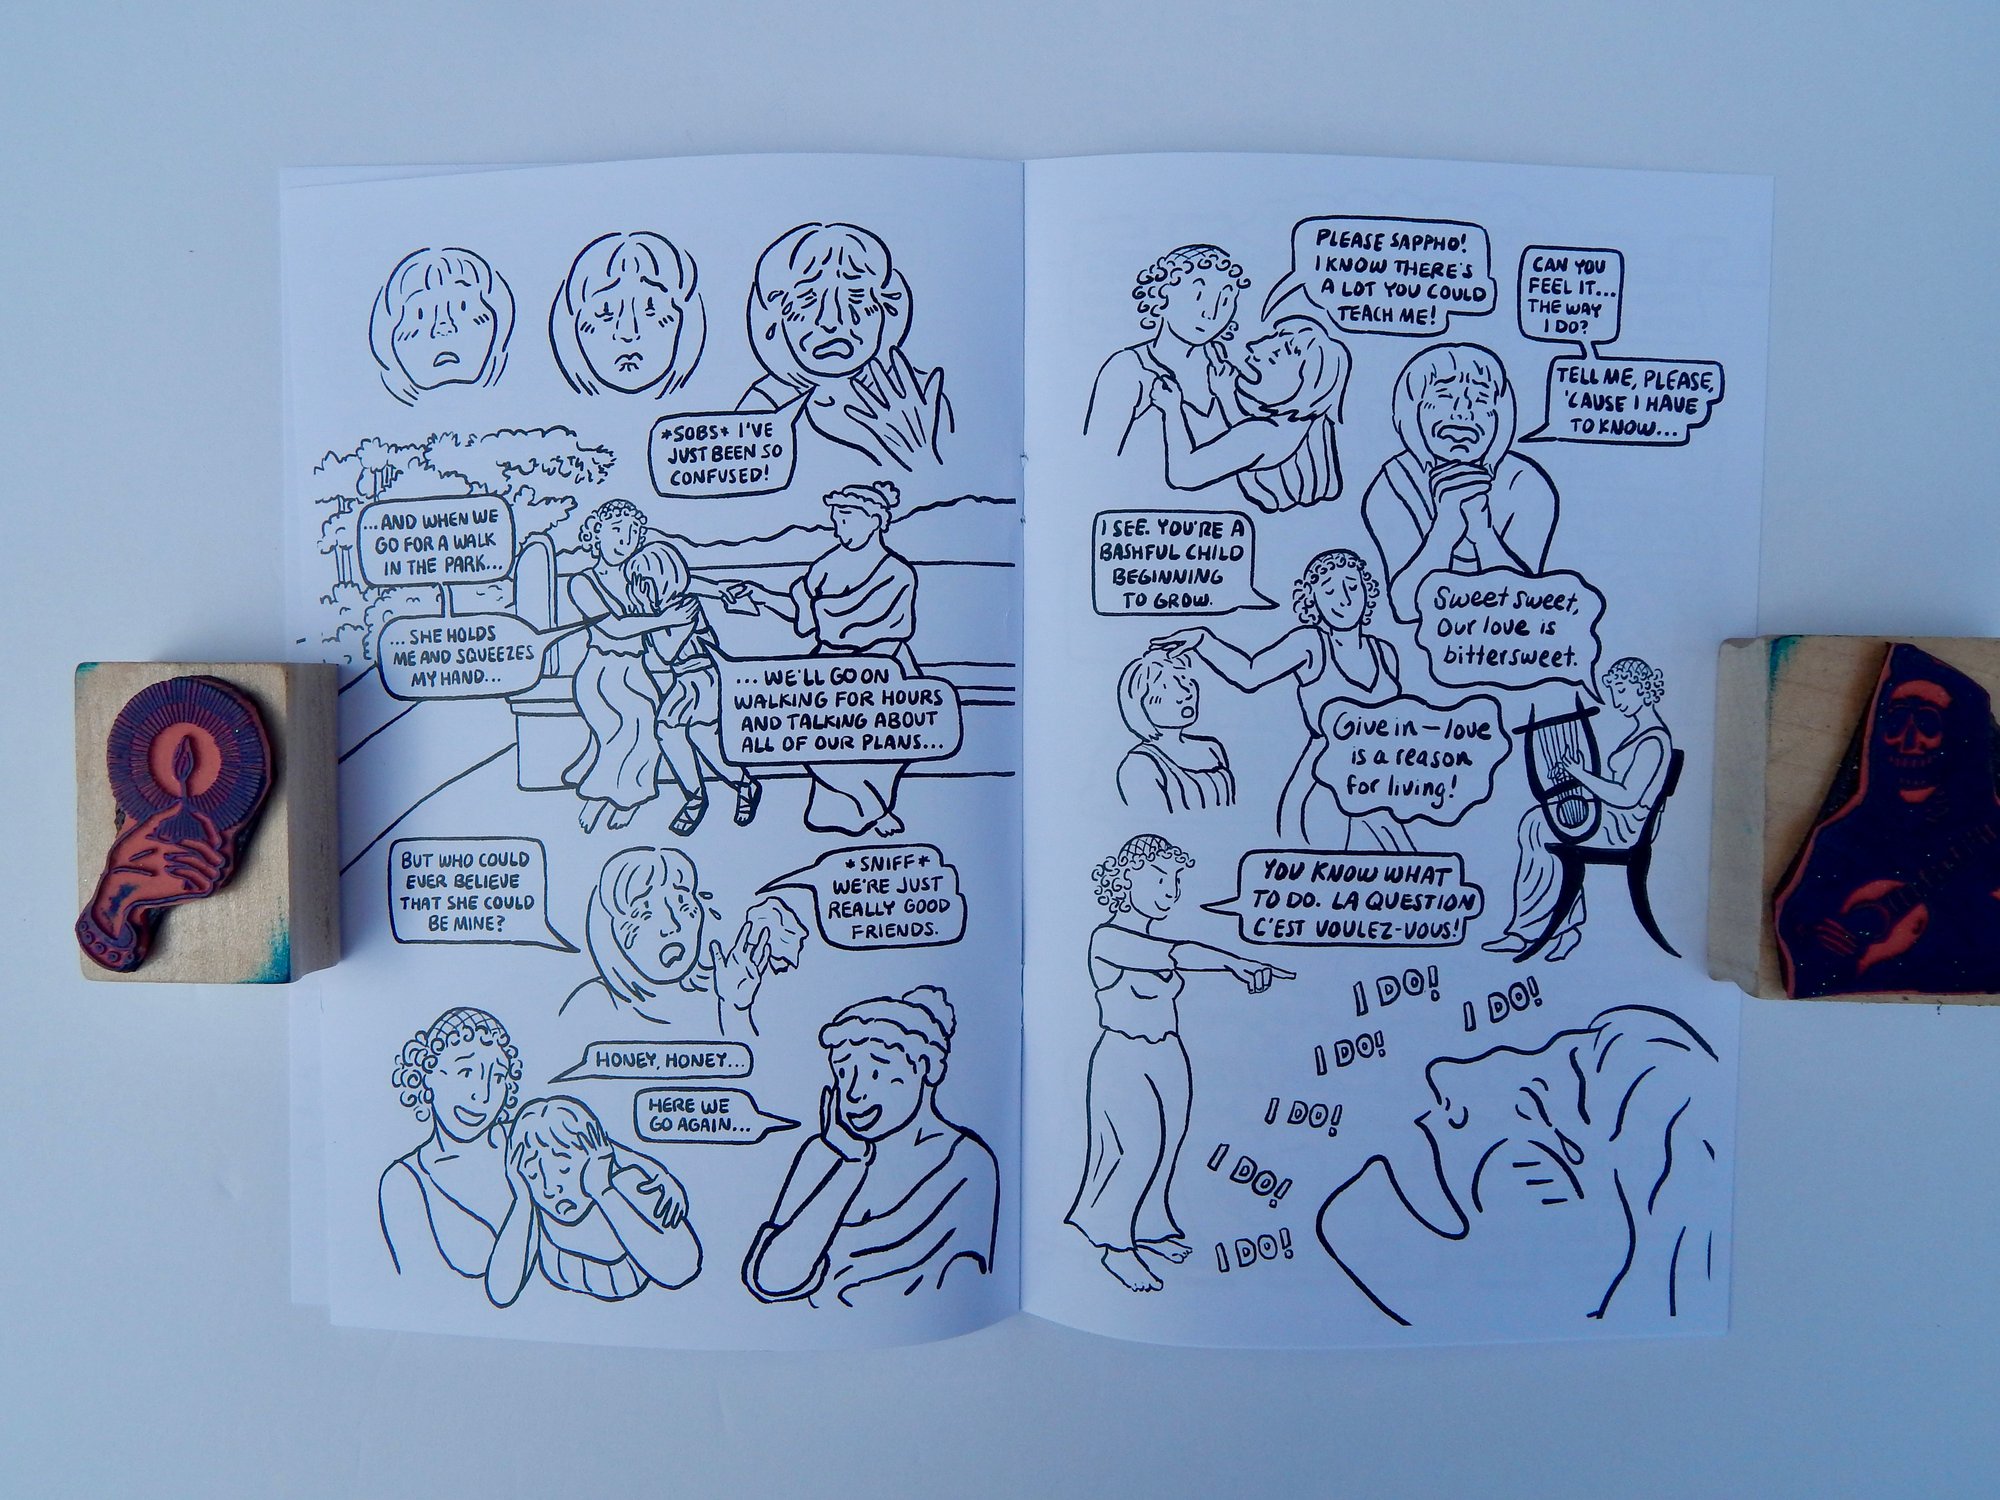 *SOBS* I'VE
JUST BEEN SO
CONFUSED!
...AND WHEN WE
GO FOR A WALK
IN THE PARK...
...SHE HOLDS
ME AND SQUEEZES
MY HAND...
...WE'LL GO ON
WALKING FOR HOURS
AND TALKING ABOUT
ALL OF OUR PLANS...
BUT WHO COULD
EVER BELIEVE
THAT SHE COULD
BE MINE?
*SNIFF*
WE'RE JUST
REALLY GOOD
FRIENDS.
HONEY, HONEY...
HERE WE
GO AGAIN...
PLEASE SAPPHO!
I KNOW THERE'S
A LOT YOU COULD
TEACH ME!
CAN YOU
FEEL IT...
THE WAY
I DO?
TELL ME, PLEASE,
'CAUSE I HAVE
TO KNOW...
I SEE. YOU'RE A
BASHFUL CHILD
BEGINNING
TO GROW.
Sweet sweet,
Our love is
bittersweet.
Give in – love
is a reason
for living!
YOU KNOW WHAT
TO DO. LA QUESTION
C'EST VOULEZ-VOUS!
I DO!
I DO!
I DO!
I DO!
I DO!
I DO!